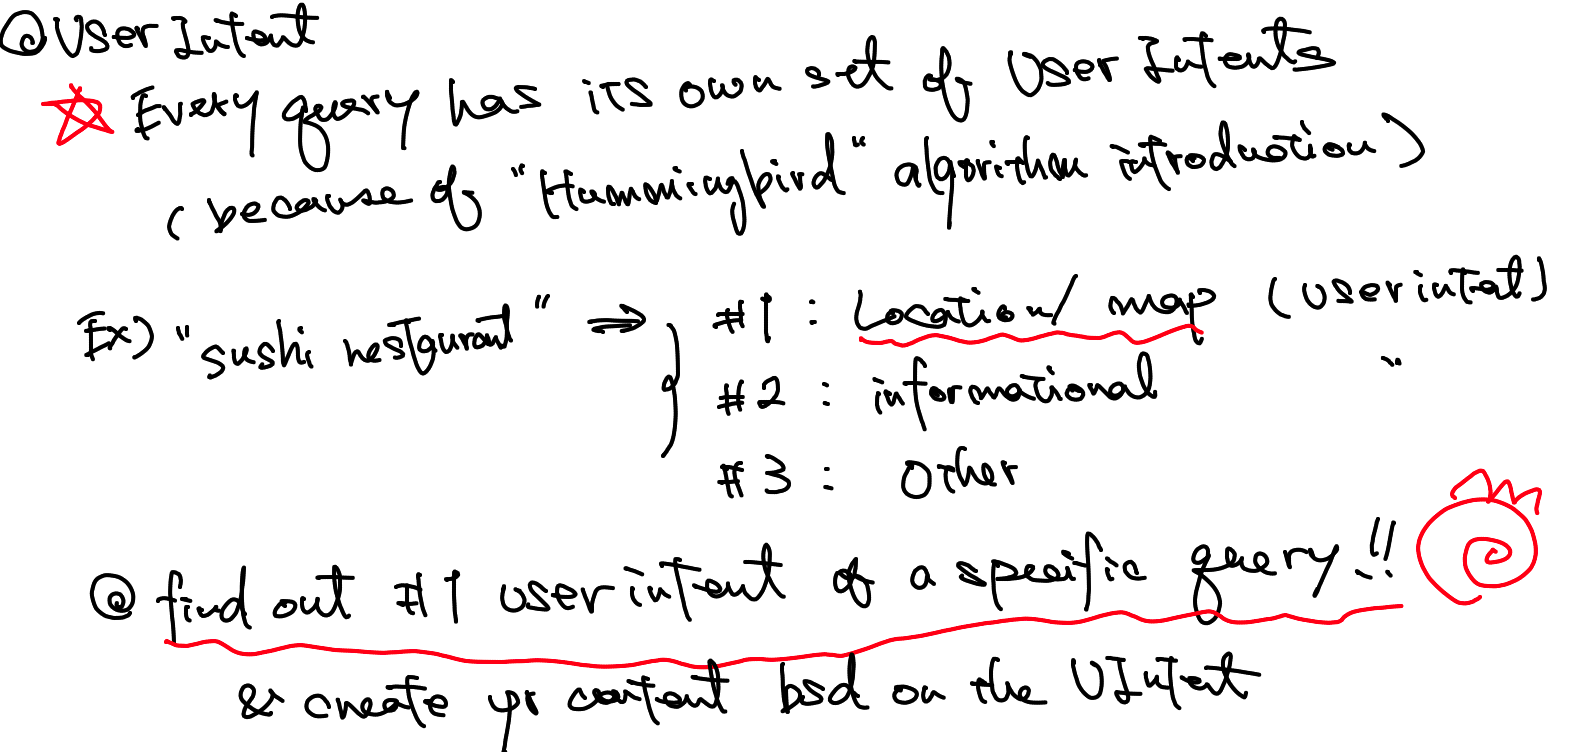 @ User Intent
☆ Every query has its own set of User Intents
( because of "Hummingbird" algorithm introduction )
Ex) "sushi restaurant" ⇒ } #1 : Location/ map (user intent)
#2 : informational "
#3 : Other
@ find out #1 user intent of a specific query!!
& create yr content bsd on the UIntent